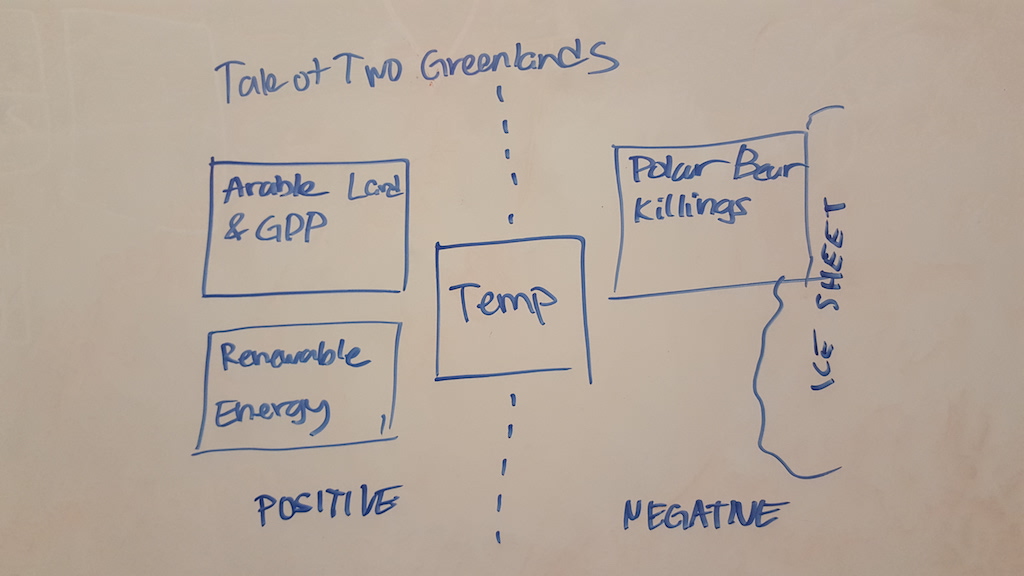 Tale of Two Greenlands
Arable Land
& GDP
Renewable
Energy
POSITIVE
Temp
Polar Bear
Killings
ICE SHEET
NEGATIVE